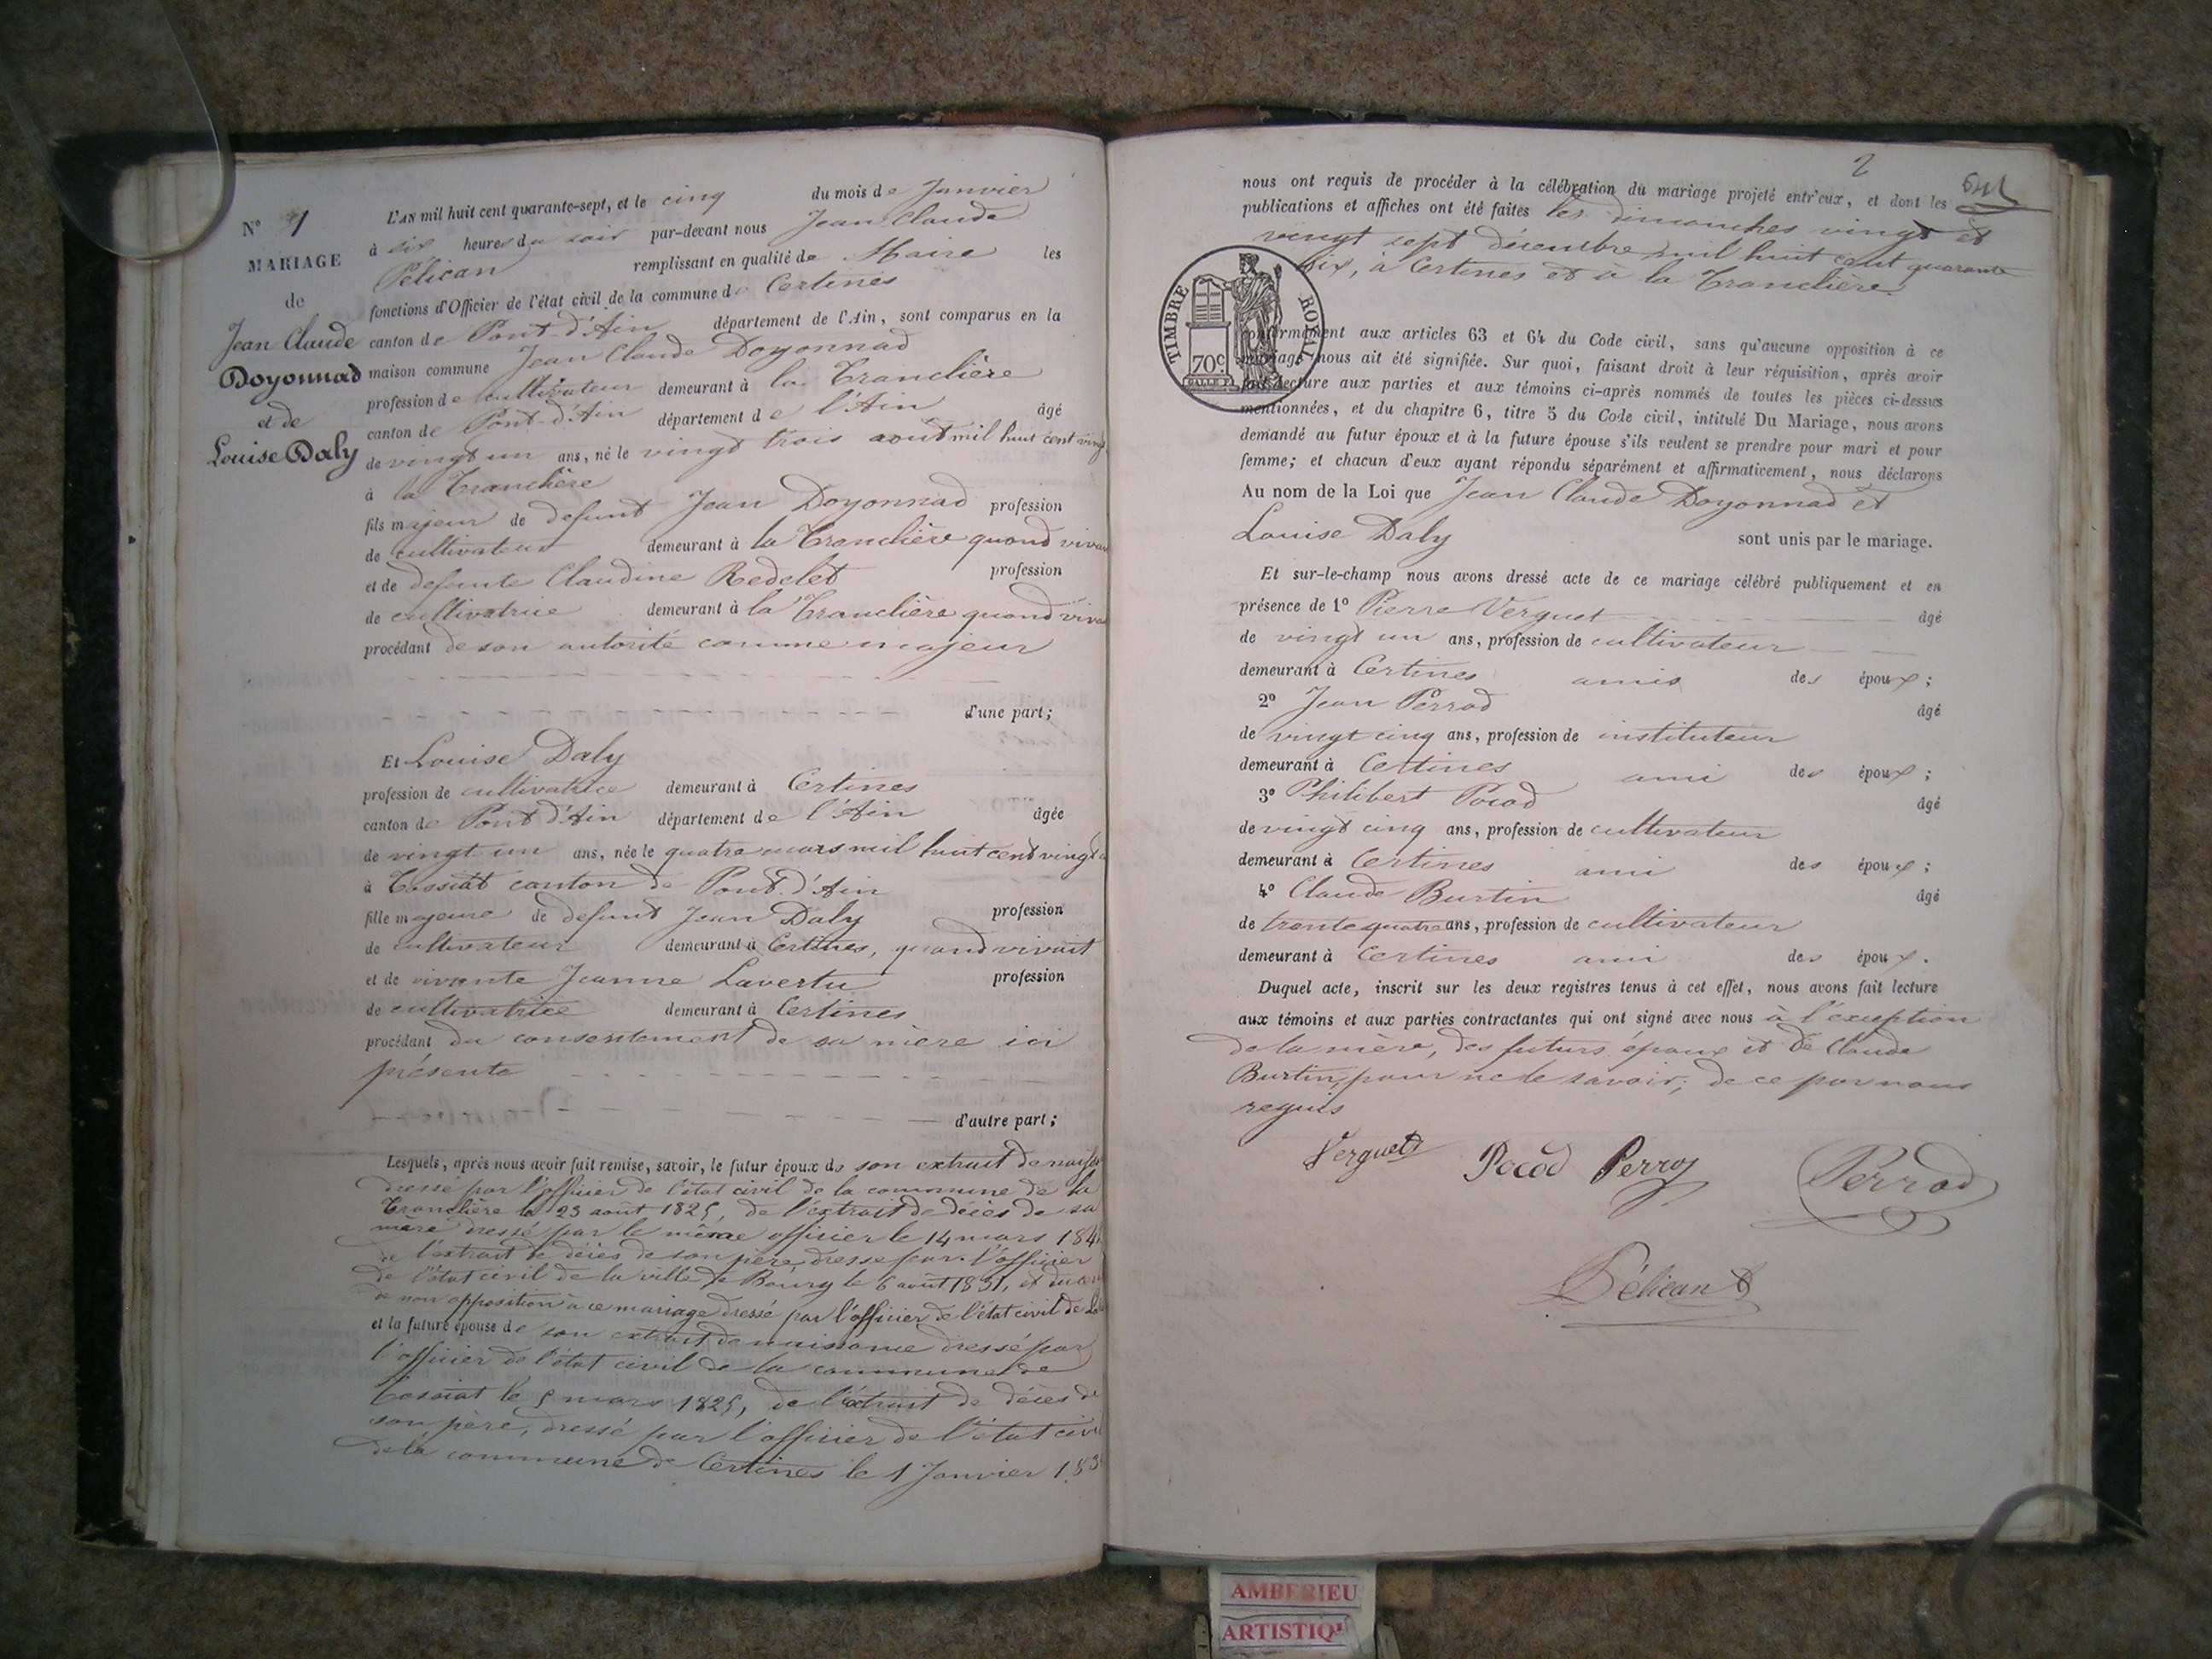 N° 1
MARIAGE
de
Jean Claude
Doyonnad
et de
Louise Daly
L'AN mil huit cent quarante-sept, et le cinq du mois de Janvier
à six heures du soir par-devant nous Jean Claude
Pélican remplissant en qualité de Maire les
fonctions d'Officier de l'état civil de la commune de Certines
canton de Pont-d'Ain département de l'Ain, sont comparus en la
maison commune Jean Claude Doyonnad
profession de cultivateur demeurant à la Tranclière
canton de Pont-d'Ain département de l'Ain âgé
de vingt un ans, né le vingt trois août mil huit cent vingt
à la Tranclière
fils majeur de defunt Jean Doyonnad profession
de cultivateur demeurant à la Tranclière quand viva
et de defunte Claudine Redelet profession
de cultivatrice demeurant à la Tranclière quand viva
procédant de son autorité comme majeur
d'une part;
Et Louise Daly
profession de cultivatrice demeurant à Certines
canton de Pont d'Ain département de l'Ain âgée
de vingt un ans, née le quatre mars mil huit cent vingt
à Tossiat canton de Pont-d'Ain
fille majeure de defunt Jean Daly profession
de cultivateur demeurant à Certines, quand vivait
et de vivante Jeanne Lavertu profession
de cultivatrice demeurant à Certines
procédant du consentement de sa mère ici
présente
d'autre part;
Lesquels, après nous avoir fait remise, savoir, le futur époux de son extrait de naiss
dressé par l'officier de l'état civil de la commune de la
Tranclière le 23 août 1825, de l'extrait de décès de sa
mère dressé par le même officier le 14 mars 184
de l'extrait de décès de son père dressé par l'officier
de l'état civil de la ville de Bourg le 6 août 1831, et du
de non opposition à ce mariage dressé par l'officier de l'état civil de La
et la future épouse de son extrait de naissance dressé par
l'officier de l'état civil de la commune de
Tossiat le 5 mars 1825, de l'extrait de décès de
son père, dressé par l'officier de l'état civi
de la commune de Certines le 1 Janvier 183
2
nous ont requis de procéder à la célébration du mariage projeté entr'eux, et dont les
publications et affiches ont été faites les dimanches vingt et
vingt sept décembre mil huit cent quarante
six, à Certines et à la Tranclière.
TIMBRE ROYAL
70c
conformément aux articles 63 et 64 du Code civil, sans qu'aucune opposition à ce
mariage nous ait été signifiée. Sur quoi, faisant droit à leur réquisition, après avoir
fait lecture aux parties et aux témoins ci-après nommés de toutes les pièces ci-dessus
mentionnées, et du chapitre 6, titre 5 du Code civil, intitulé Du Mariage, nous avons
demandé au futur époux et à la future épouse s'ils veulent se prendre pour mari et pour
femme; et chacun d'eux ayant répondu séparément et affirmativement, nous déclarons
Au nom de la Loi que Jean Claude Doyonnad et
Louise Daly sont unis par le mariage.
Et sur-le-champ nous avons dressé acte de ce mariage célébré publiquement et en
présence de 1° Pierre Verguet âgé
de vingt un ans, profession de cultivateur
demeurant à Certines amis des époux;
2° Jean Perrod âgé
de vingt cinq ans, profession de instituteur
demeurant à Certines ami des époux;
3° Philibert Pocod âgé
de vingt cinq ans, profession de cultivateur
demeurant à Certines ami des époux;
4° Claude Burtin âgé
de trente quatre ans, profession de cultivateur
demeurant à Certines ami des époux.
Duquel acte, inscrit sur les deux registres tenus à cet effet, nous avons fait lecture
aux témoins et aux parties contractantes qui ont signé avec nous à l'exception
de la mère, des futurs époux et de Claude
Burtin, pour ne le savoir; de ce par nous
requis
Verguet Pocod Perrod
Pélican
AMBERIEU
ARTISTIQ